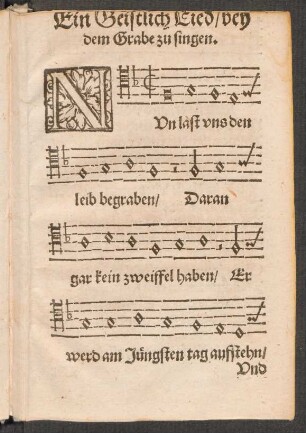 Ein Geistlich Lied/bey
dem Grabe zu singen.
NVn last vns den
leib begraben/ Daran
gar kein zweiffel haben/ Er
werd am Jüngsten tag auffstehn/
Vnd